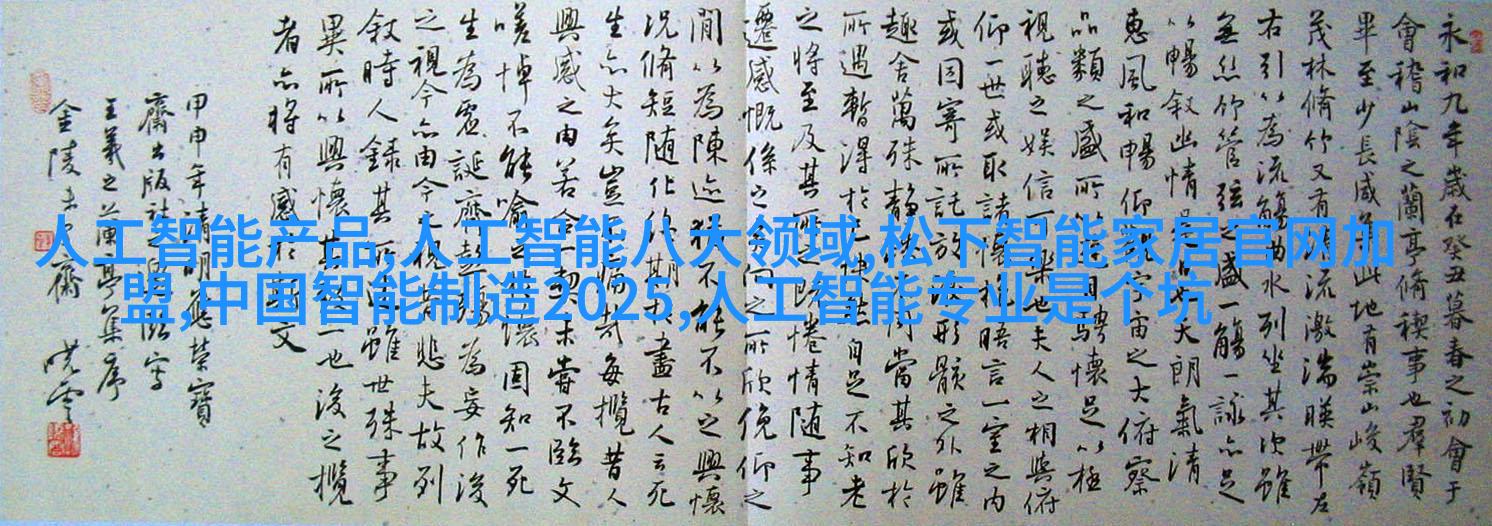 人工智能产品,人工智能八大领域,松下智能家居官网加
盟,中国智能制造2025,人工智能专业是个坑
永和九年歲在癸丑暮春之初會于
會稽山陰之蘭亭脩稧事也羣賢
畢至少長咸集此地有崇山峻嶺
茂林脩竹又有清流激湍暎帶左
右引以為流觴曲水列坐其次雖
無絲竹管弦之盛一觴一詠亦足
以暢敘幽情是日也天朗氣清
惠風和暢仰觀宇宙之大俯察
品類之盛所以遊目騁懷足以極
視聽之娛信可樂也夫人之相與俯
仰一世或取諸懷抱晤言一室之內
或因寄所託放浪形骸之外雖
趣舍萬殊靜躁不同當其欣於
所遇暫得於己快然自足不知老
之將至及其所之既惓情隨事
遷感慨係之矣向之所欣俛仰之
間以為陳迹猶不能不以之興懷
況脩短隨化終期於盡古人云死
生亦大矣豈不痛哉每攬昔人
興感之由若合一契未嘗不臨文
嗟悼不能喻之於懷固知一死
生為虛誕齊彭殤為妄作後
之視今亦由今之視昔悲夫故列
敘時人錄其所述雖世殊事
異所以興懷其致一也後之攬
者亦將有感於斯文
甲申年清明應榮寶
齋出版社之邀臨寫
王羲之蘭亭集序
金陵 齋